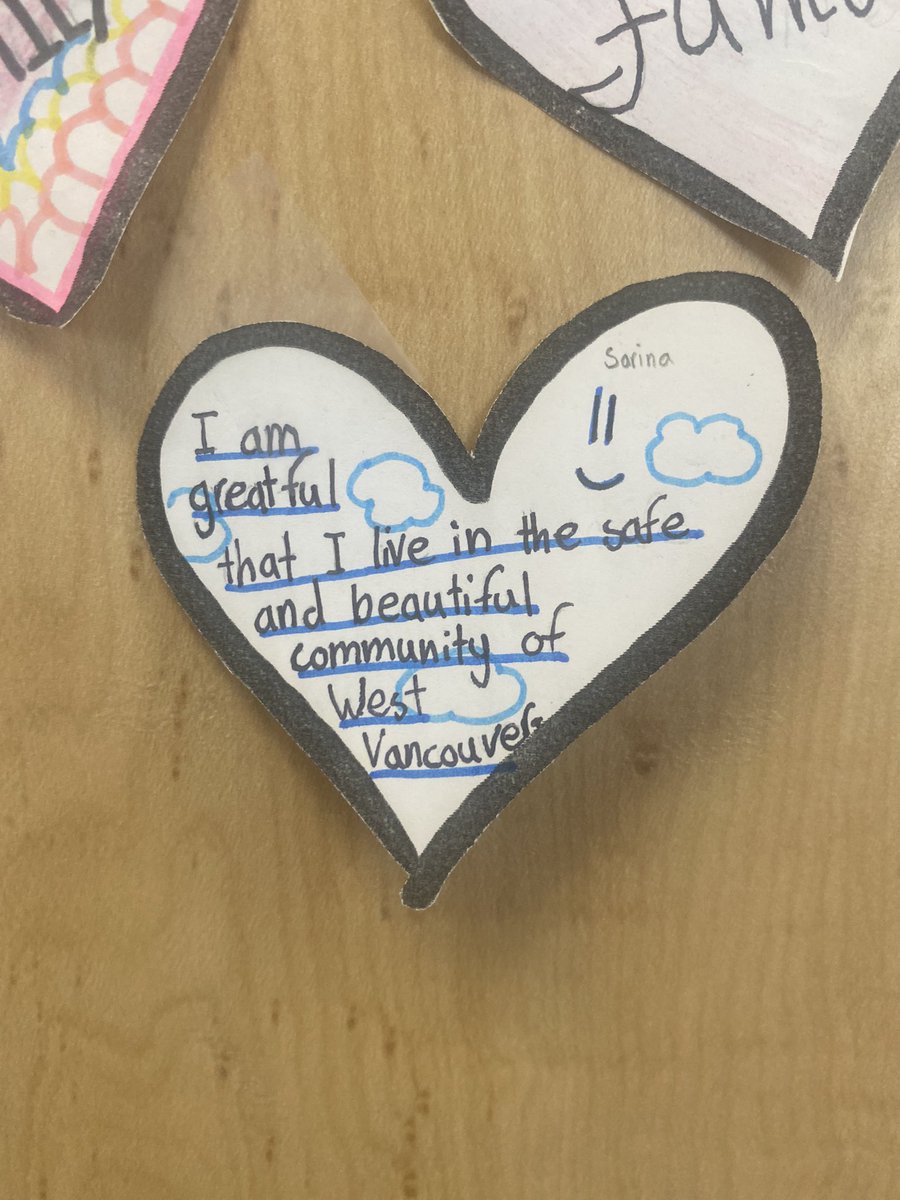 Sarina
I am
greatful
that I live in the safe
and beautiful
community of
West
Vancouver